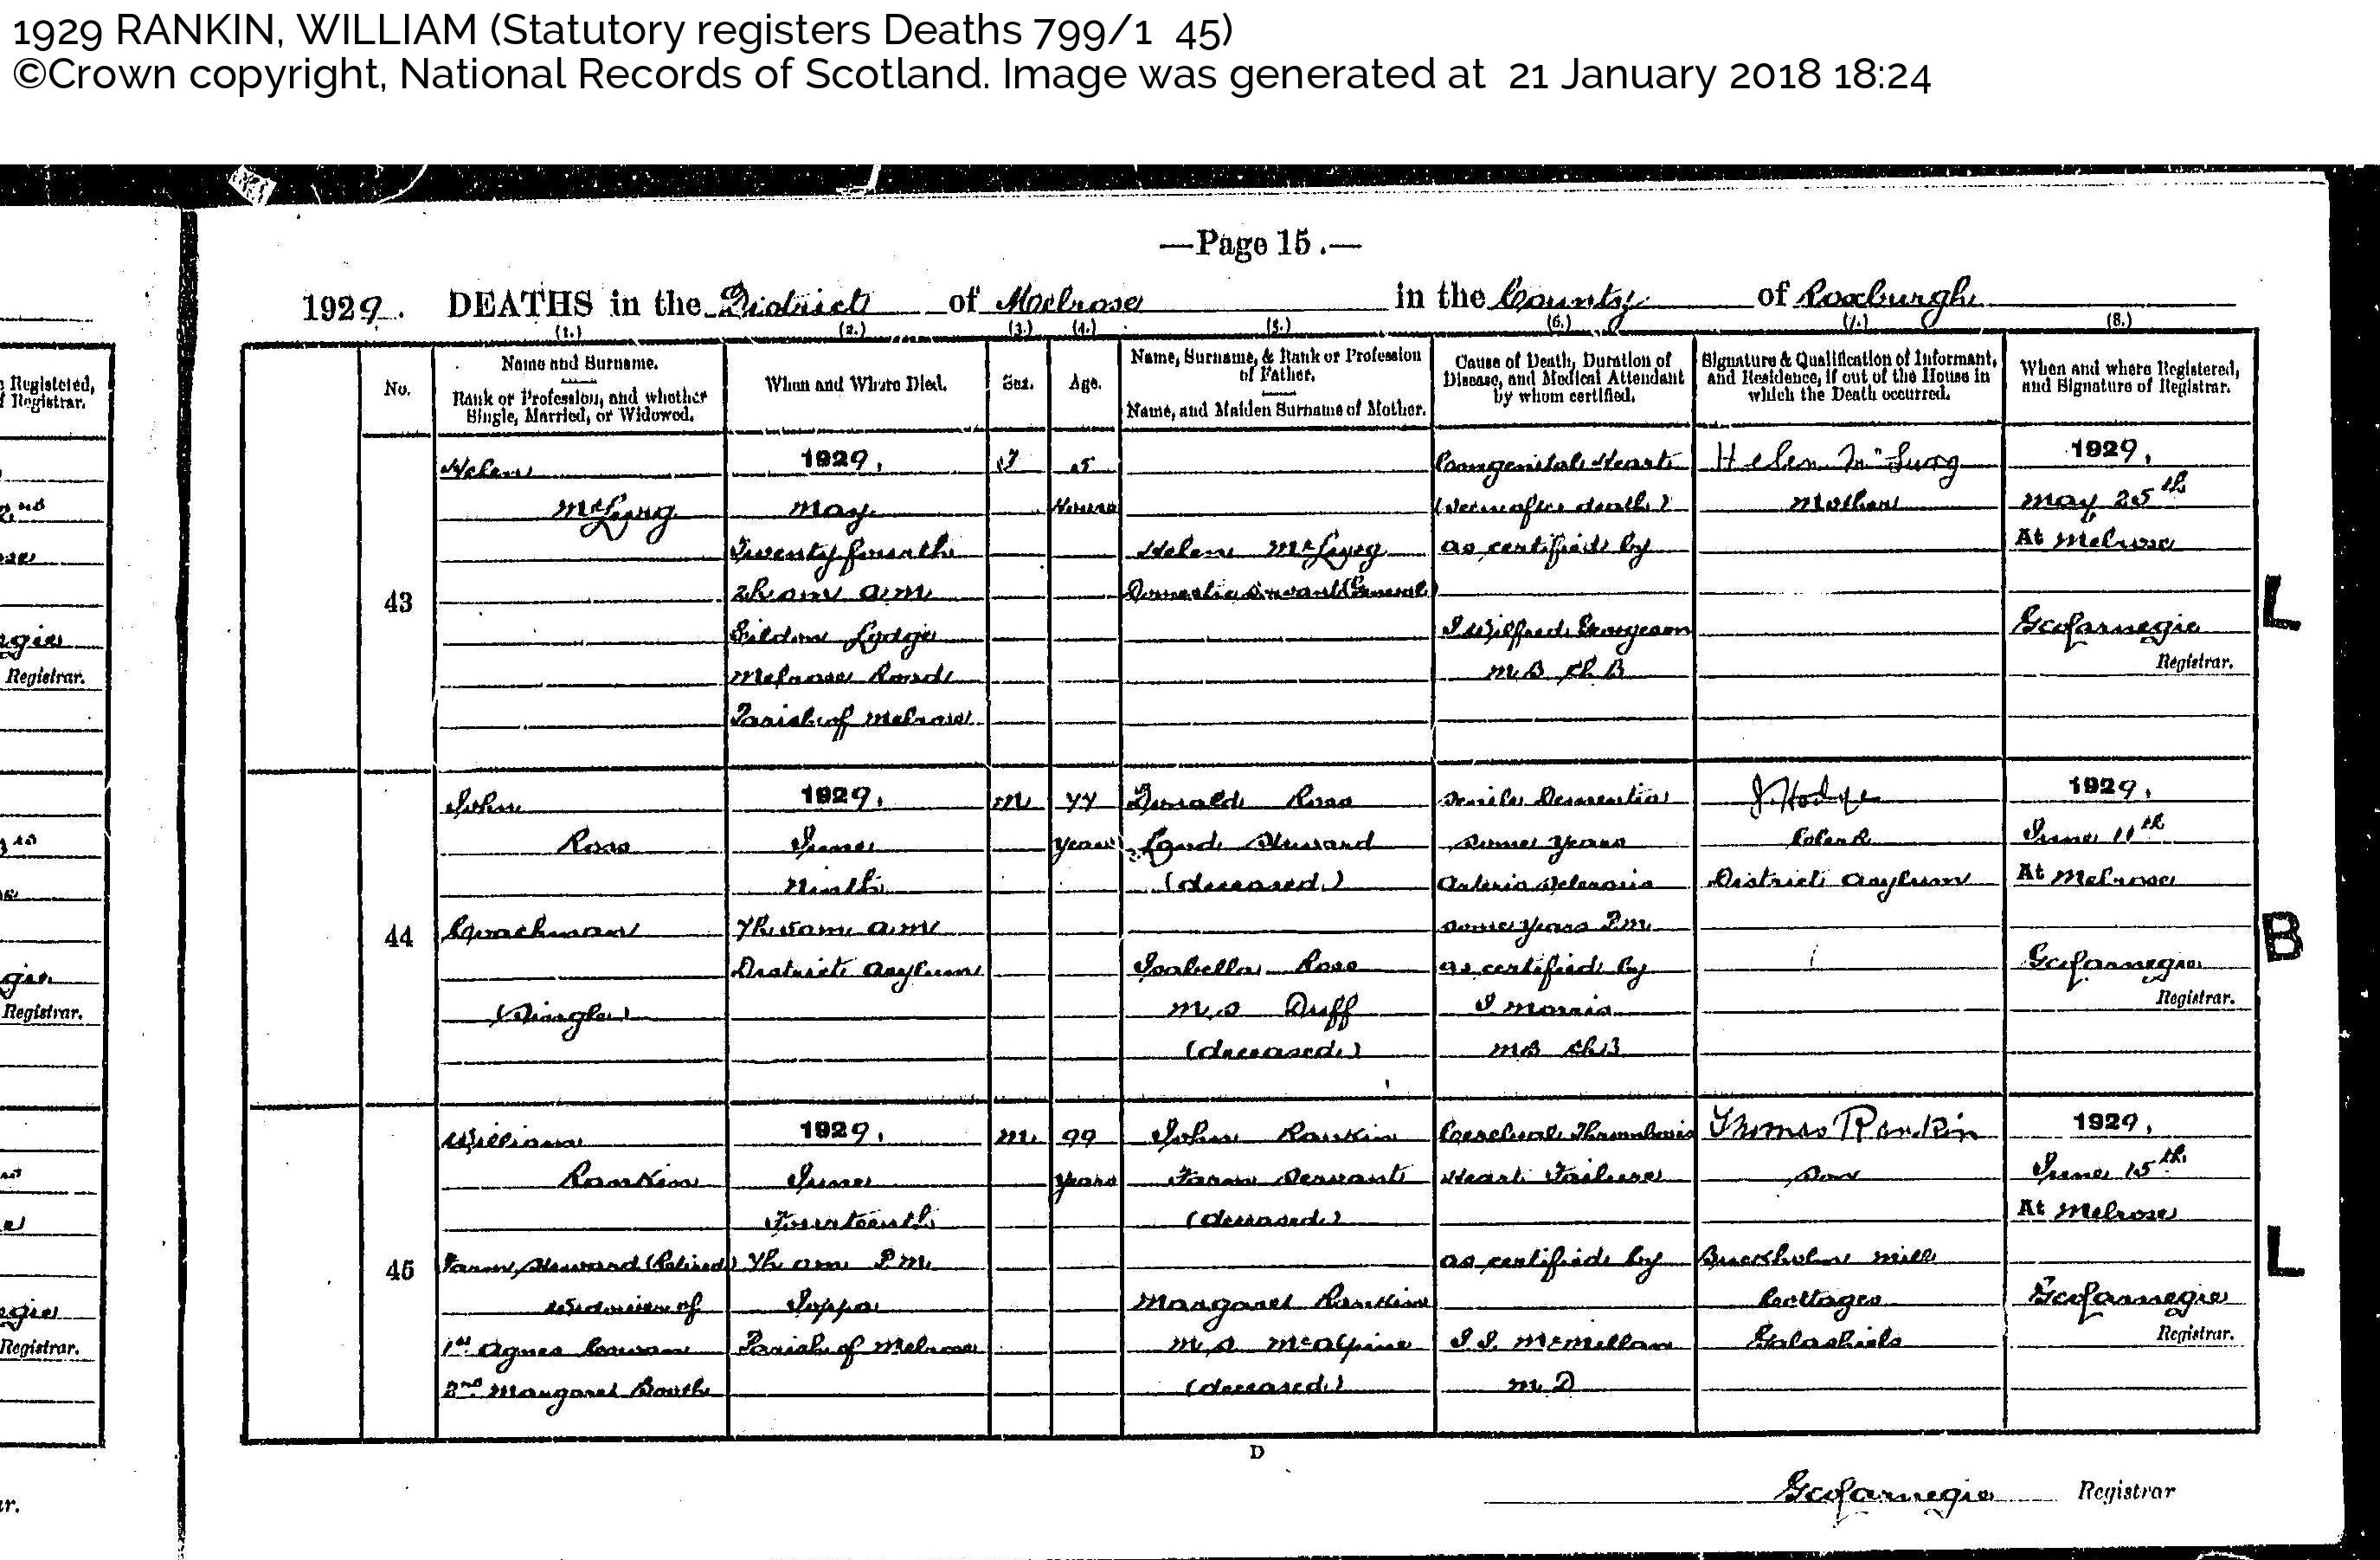 1929 RANKIN, WILLIAM (Statutory registers Deaths 799/1 45)
©Crown copyright, National Records of Scotland. Image was generated at 21 January 2018 18:24
—Page 15.—
1929. DEATHS in the District of Melrose in the County of Roxburgh
(1.) (2.) (3.) (4.) (5.) (6.) (7.) (8.)
No.
Name and Surname.
Rank or Profession, and whether
Single, Married, or Widowed.
When and Where Died.
Sex.
Age.
Name, Surname, & Rank or Profession
of Father.
Name, and Maiden Surname of Mother.
Cause of Death, Duration of
Disease, and Medical Attendant
by whom certified.
Signature & Qualification of Informant,
and Residence, if out of the House in
which the Death occurred.
When and where Registered,
and Signature of Registrar.
43
Helen
1929.
May
Twenty fourth
2h 0m A.M.
Lodge
Melrose Road
Parish of Melrose
F
5
Hours
Helen
Domestic Servant (General)
Congenital Heart
(Seen after death)
as certified by
M.B. Ch.B
Helen
Mother
1929.
May 25th
At Melrose
Registrar.
L
44
John
Ross
Coachman
(Single)
1929.
June
Ninth
A.M.
District Asylum
M
77
Years
Donald Ross
Land Steward
(deceased)
Isabella Ross
M.S. Duff
(deceased)
Senile Dementia
some years
Arterio Sclerosis
some years P.M.
as certified by
Morris
M.B. Ch.B
Clerk
District Asylum
1929.
June 11th
At Melrose
Registrar.
B
45
William
Rankin
Farm Steward (Retired)
Widower of
1st Agnes Cowan
2nd Margaret
1929.
June
Fourteenth
7h 0m P.M.
Parish of Melrose
M.
99
Years
John Rankin
Farm Servant
(deceased)
Margaret Rankin
M.S. McAlpine
(deceased)
Cerebral Thrombosis
Heart Failure
as certified by
McMillan
M.D
Thomas Rankin
Son
Buckholm Mill
Cottages
Galashiels
1929.
June 15th
At Melrose
Registrar.
L
D
Registrar